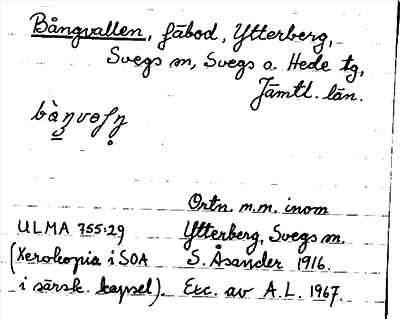 Bångvallen, fäbod, Ytterberg,
Svegs sn, Svegs o. Hede tg,
Jämtl. län.
Ortn. m.m. inom
ULMA 755:29 Ytterberg, Svegs sn.
(Xerokopia i SOA S. Åsander 1916.
i särsk. kapsel). Exc. av A.L. 1967.